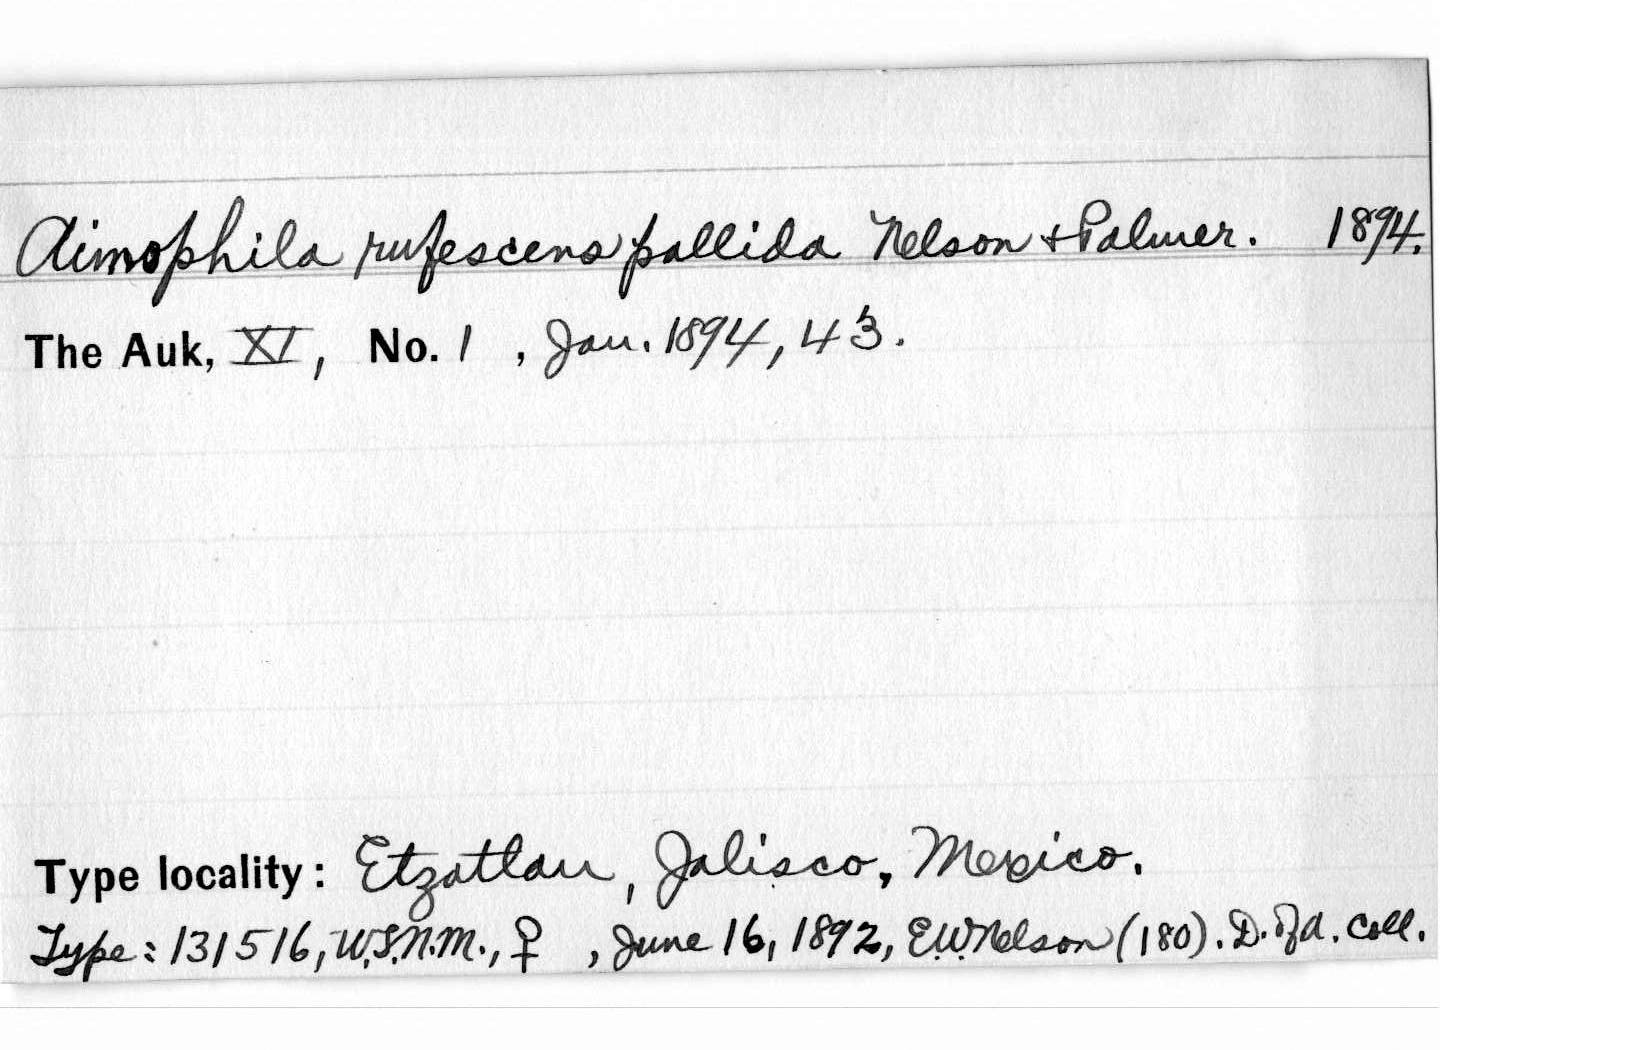 Aimophila rufescens pallida Nelson + Palmer. 1894.
The Auk, XI, No. 1, Jan. 1894, 43.
Type locality: Etzatlan, Jalisco, Mexico.
Type: 131516, U.S.N.M., ♀, June 16, 1892, E.W. Nelson (180). D. of A. Coll.